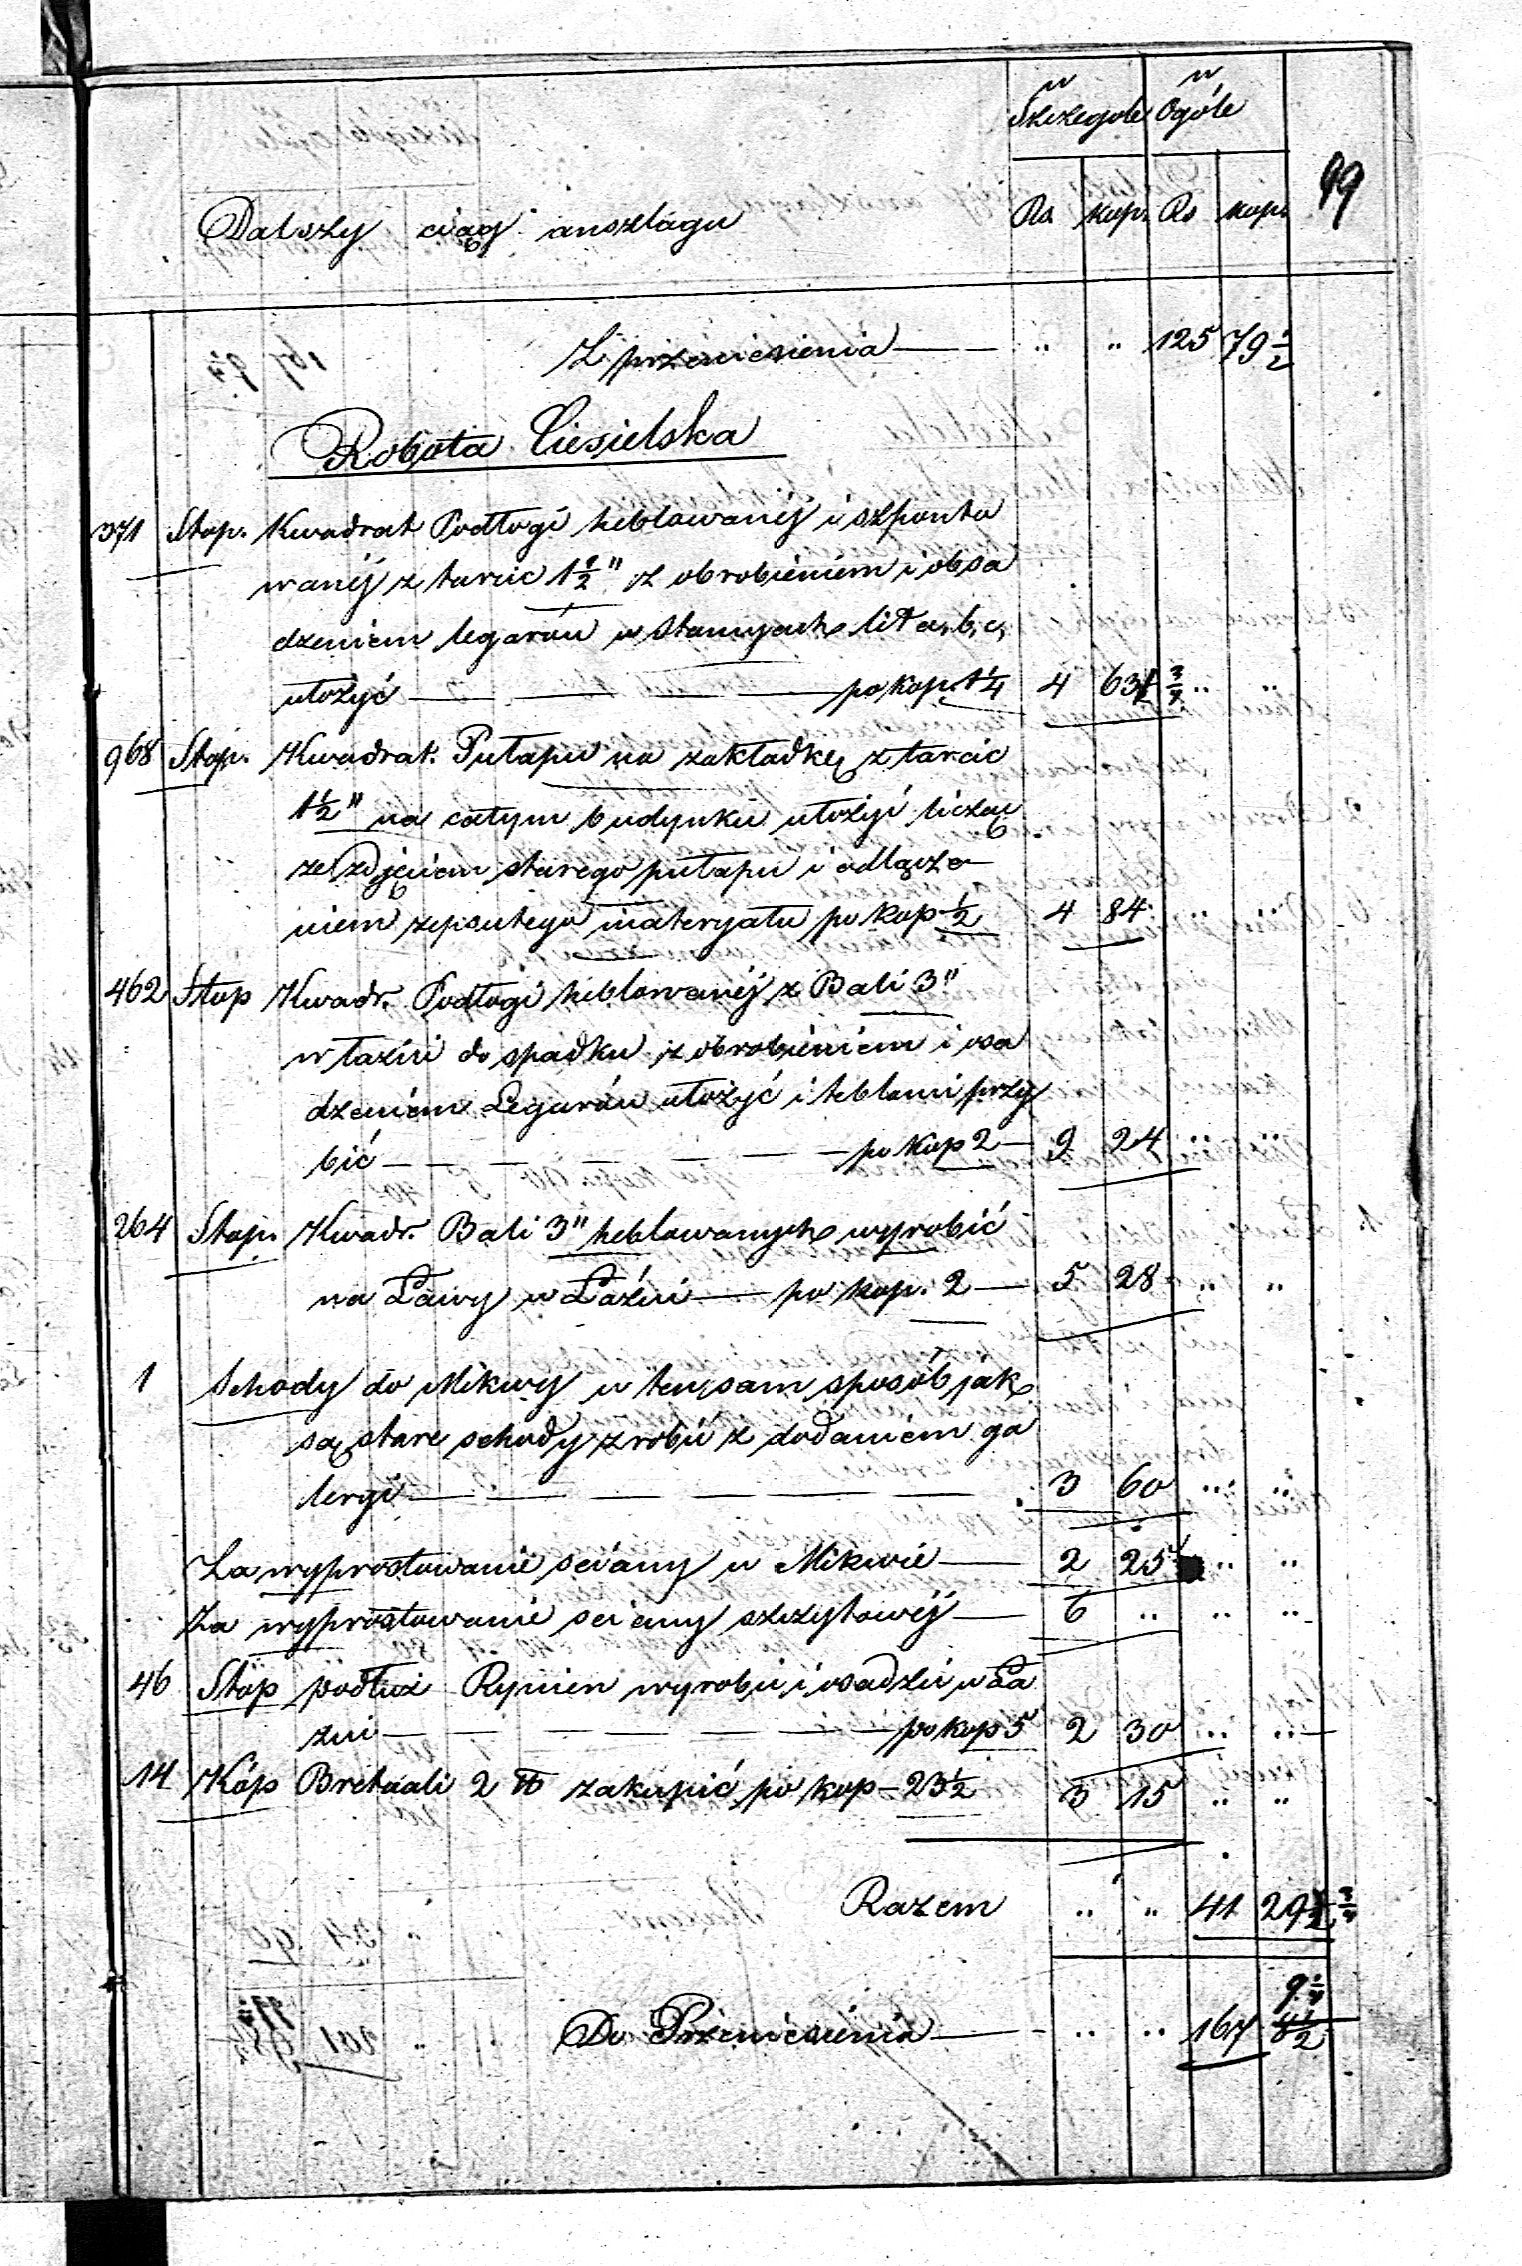 w Szczegole w Ogóle
99
Dalszy ciąg anszlagu Rs kop. Rs kop.
Z przeniesienia — " " 125 79 1/2
Robota Ciesielska
371 Stop. Kwadrat Podłogi heblowanéj i szponto
wanéj z tarcic 1 1/2" z obrobieniem i obsa
dzeniem legarów w Stancyach lit a, b, c,
ułożyć — po kop. 1 1/4 4 63 3/4 " "
968 Stop. Kwadrat. Pułapu na zakładkę z tarcic
1 1/2" na całym budynku ułożyć licząc
ze zdjęciem starego pułapu i odłącze
niem zepsutego materyału po kop 1/2 4 84
462 Stop Kwadr. Podłogi heblowanéj z Bali 3"
w łaźni do spadku z obrobieniem i osa
dzeniem Legarów ułożyć i teblami przy
bić — po kop 2 — 9 24 " "
264 Stop. Kwadr. Bali 3" heblowanych wyrobić
na Ławy w Łaźni — po kop. 2 — 5 28 " "
1 Schody do Mikwy w ten sam sposób jak
są stare schody zrobić z dodaniem ga
leryi — 3 60 " "
Za wyprostowanie sciany w Mikwie — 2 25 " "
Za wyprostowanie sciany szczytowéj — 6 " " "
46 Stóp podłuż Rynien wyrobić i osadzić w Ła
źni — po kop 5 2 30 " "
14 Kóp Bretnali 2 ℔ zakupić po kop — 23 1/2 3 15 " "
Razem " " 41 29 3/4
Do Przeniesienia — " " 167 9 1/4